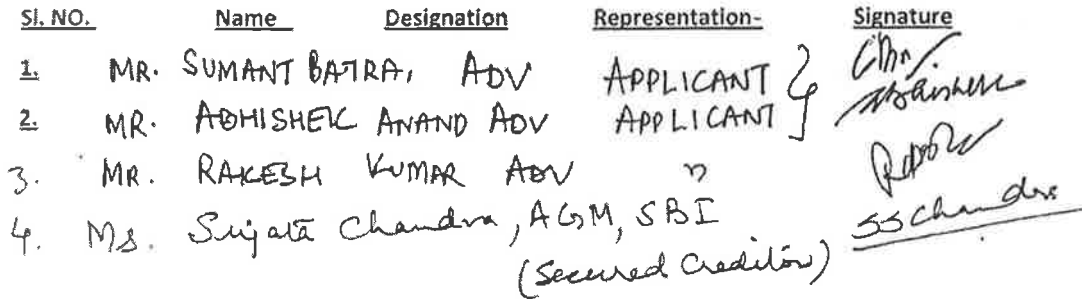 Sl. NO. Name Designation Representation- Signature
1. MR. SUMANT BATRA, ADV APPLICANT
2. MR. ABHISHEK ANAND ADV APPLICANT
3. MR. RAKESH KUMAR ADV "
4. Ms. Sujata Chandra, AGM, SBI SS Chandra
(Secured Creditor)